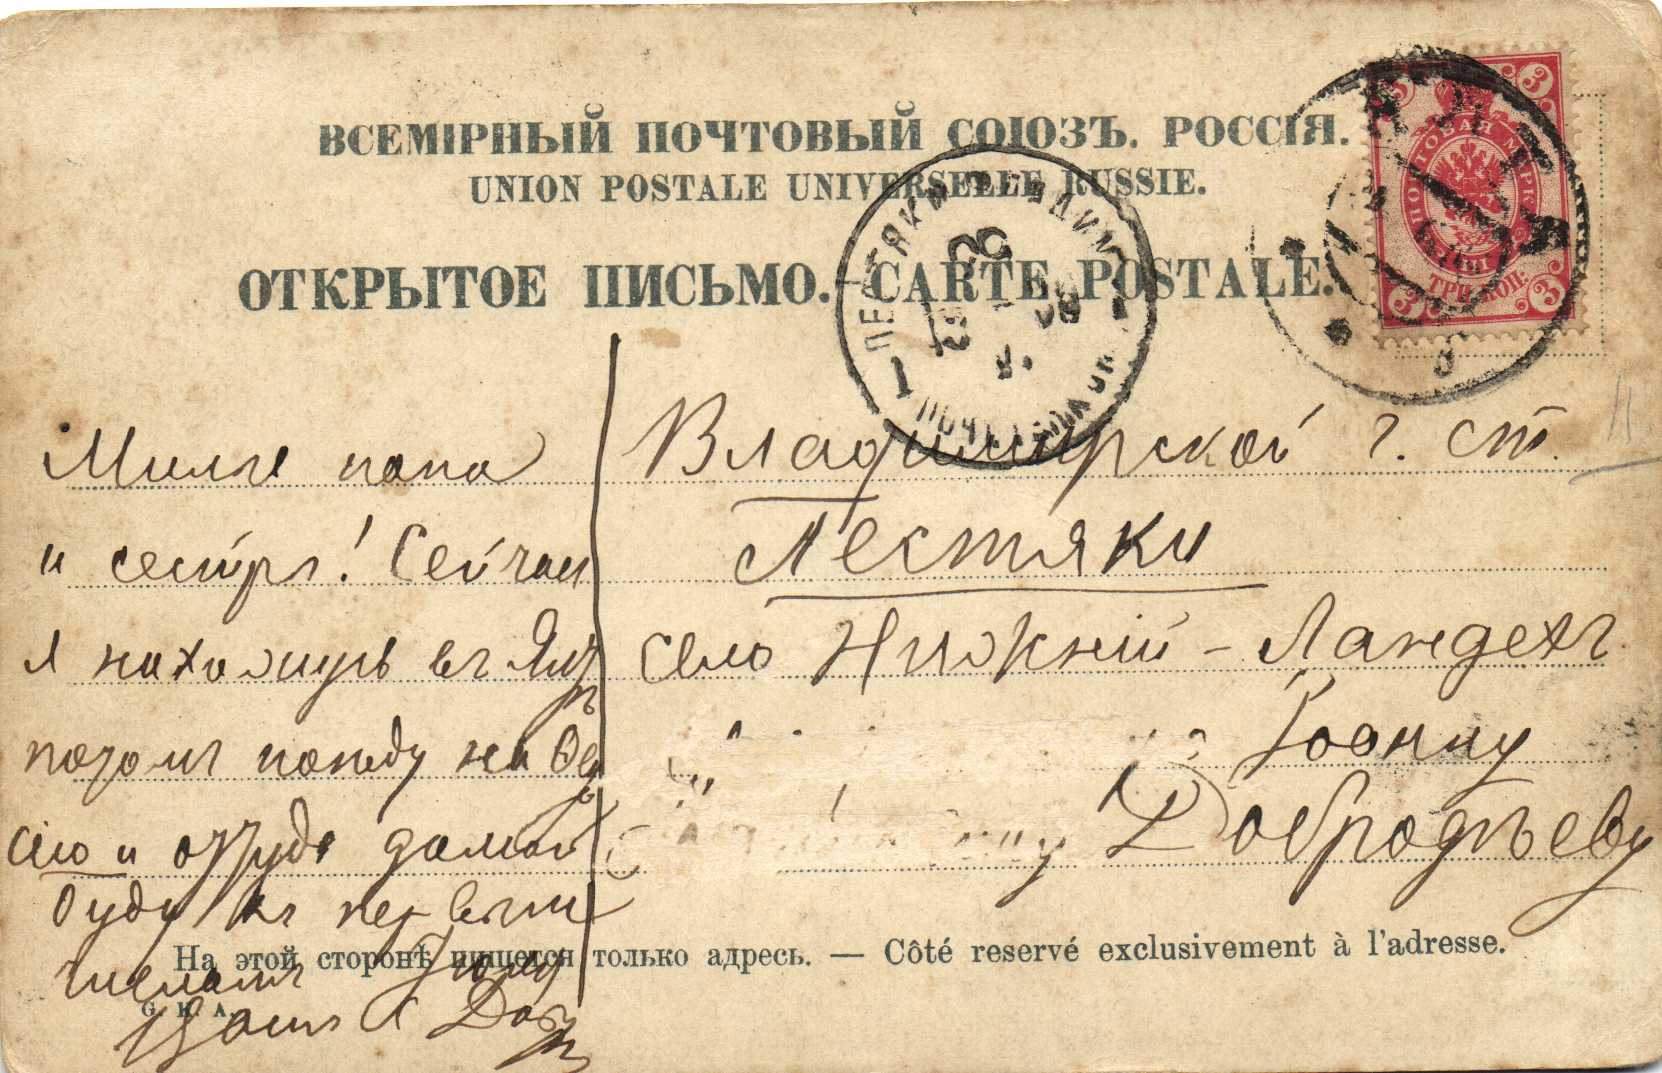 ВСЕМІРНЫЙ ПОЧТОВЫЙ СОЮЗЪ. РОССІЯ.
UNION POSTALE UNIVERSELLE RUSSIE.
ОТКРЫТОЕ ПИСЬМО. CARTE POSTALE.
ПОЧТОВАЯ МАРКА
ТРИ КОП.
3 3 3
ПЕСТЯКИ ВЛАДИМ.
1
Милые папа
и сестры! Сейчас
я нахожусь въ Ялт
потомъ поеду на
и оттуда домой
буду къ первым
числамъ
Вашъ
Владимирской г. ст.
Пестяки
село Нижній-Ландехъ
Іоанну
Добродѣеву
На этой сторонѣ пишется только адресъ. — Côté reservé exclusivement à l'adresse.
G. K. A.